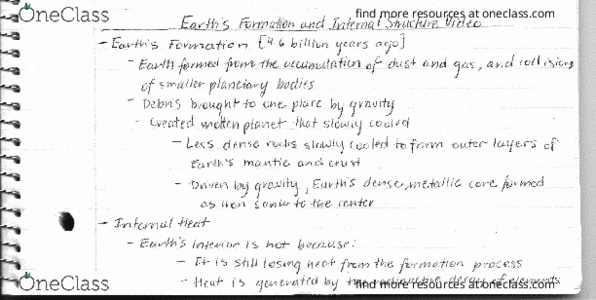 OneClass
find more resources at oneclass.com
Earth's Formation and Internal Structure Video
- Earth's Formation [4.6 billion years ago]
- Earth formed from the accumulation of dust and gas, and collisions
of smaller planetary bodies
- Debris brought to one place by gravity
- Created molten planet that slowly cooled
- Less dense rocks slowly cooled to form outer layers of
Earth's mantle and crust
- Driven by gravity, Earth's dense, metallic core formed
as iron sank to the center
- Internal Heat
- Earth's interior is hot because:
- It is still losing heat from the formation process
- Heat is generated by the radioactive decay of elements
OneClass
find more resources at oneclass.com